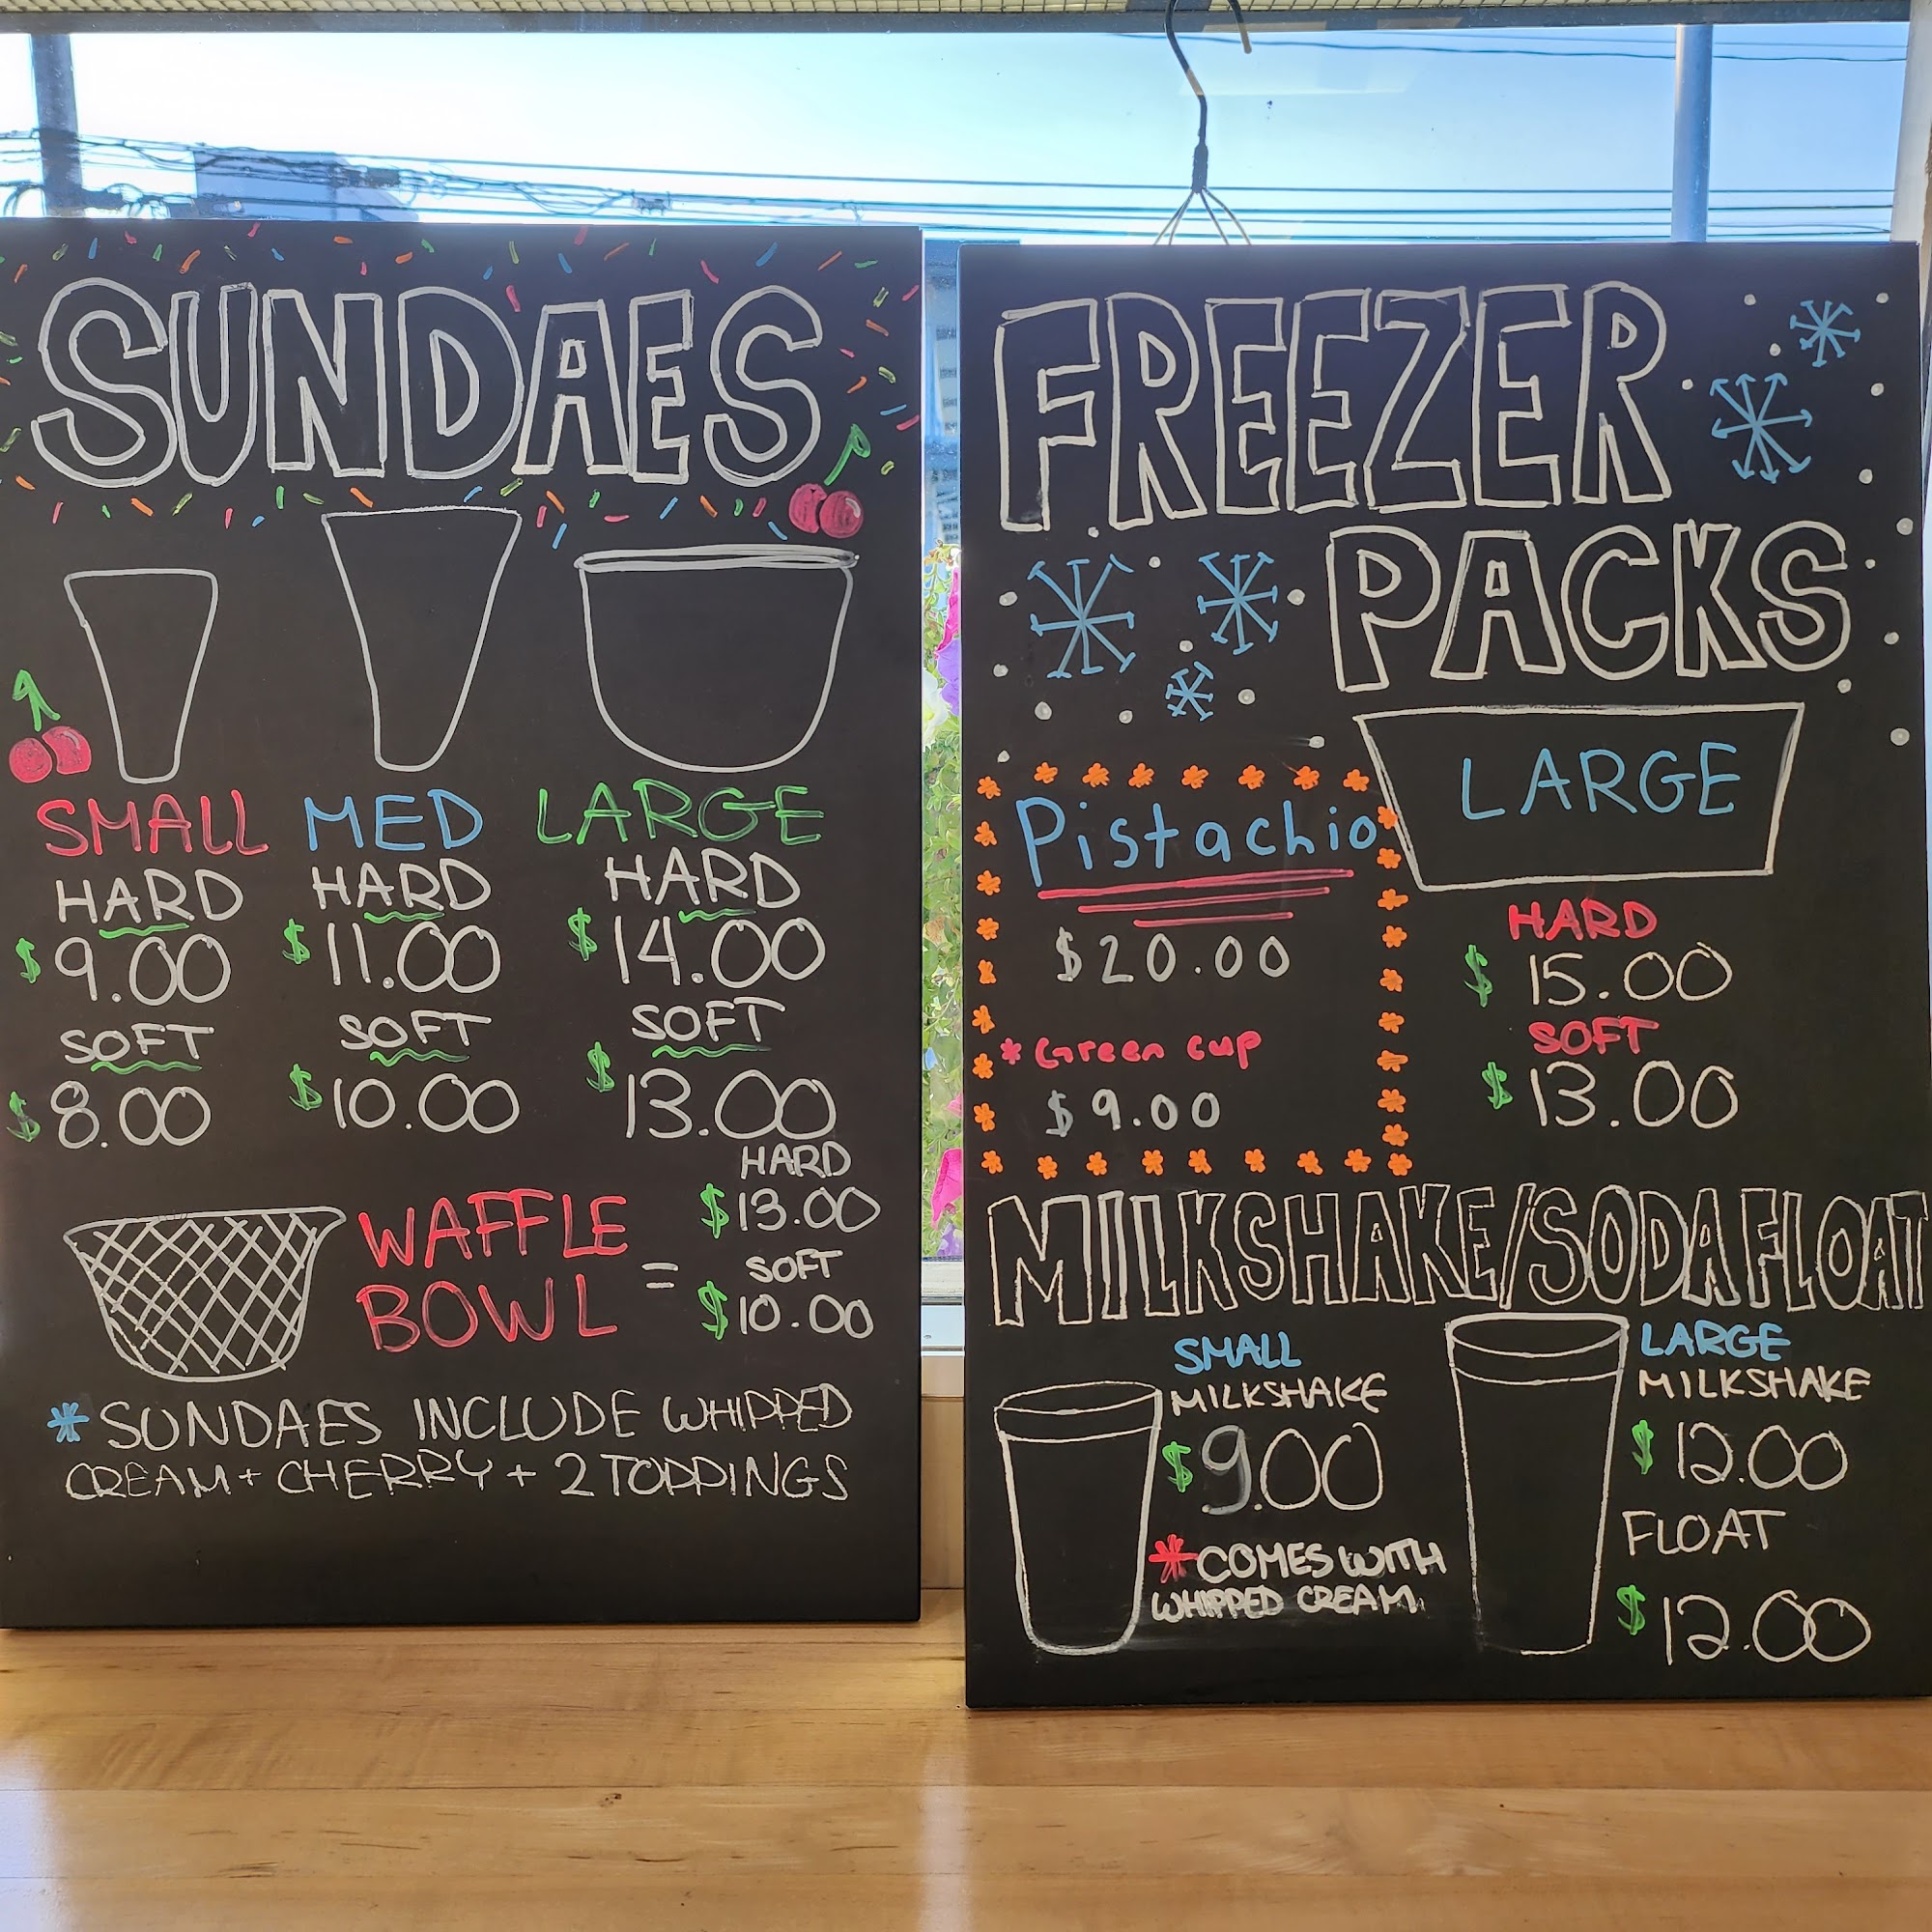 SUNDAES
SMALL MED LARGE
HARD HARD HARD
$9.00 $11.00 $14.00
SOFT SOFT SOFT
$8.00 $10.00 $13.00
WAFFLE
BOWL =
HARD
$13.00
SOFT
$10.00
*SUNDAES INCLUDE WHIPPED
CREAM + CHERRY + 2 TOPPINGS
FREEZER
PACKS
Pistachio
$20.00
*Green cup
$9.00
LARGE
HARD
$15.00
SOFT
$13.00
MILKSHAKE/SODA FLOAT
SMALL
MILKSHAKE
$9.00
*COMES WITH
WHIPPED CREAM
LARGE
MILKSHAKE
$12.00
FLOAT
$12.00